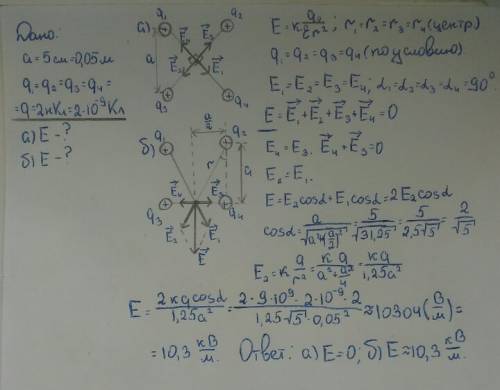 Дано:
a = 5 см = 0,05 м
q₁ = q₂ = q₃ = q₄ =
= q = 2 нКл = 2·10⁻⁹ Кл
а) E - ?
б) E - ?
а) q₁ q₂
a
E₃ E₄
E₂ E₁
q₃ q₄
a/2
б) q₁ q₂
r a
E₄ E₃
q₃ q₄
E₂ E₁
E
E = k q₀/εr² ; r₁ = r₂ = r₃ = r₄ (центр)
q₁ = q₂ = q₃ = q₄ (по условию)
E₁ = E₂ = E₃ = E₄; α₁ = α₂ = α₃ = α₄ = 90°
E = E₁ + E₂ + E₃ + E₄ = 0
E₄ = E₃. E₄ + E₃ = 0
E₂ = E₁.
E = E₂cosα + E₁cosα = 2E₂cosα
cosα = a/√(a²+(a/2)²) = 5/√31,25 = 5/2,5√5 = 2/√5
E₂ = k q/r² = kq/(a²+a²/4) = kq/1,25a²
E = 2kq cosα/1,25a² = 2·9·10⁹·2·10⁻⁹·2/1,25·√5·0,05² ≈ 10304 (В/м) =
= 10,3 кВ/м. Ответ: а) E = 0; б) E ≈ 10,3 кВ/м.